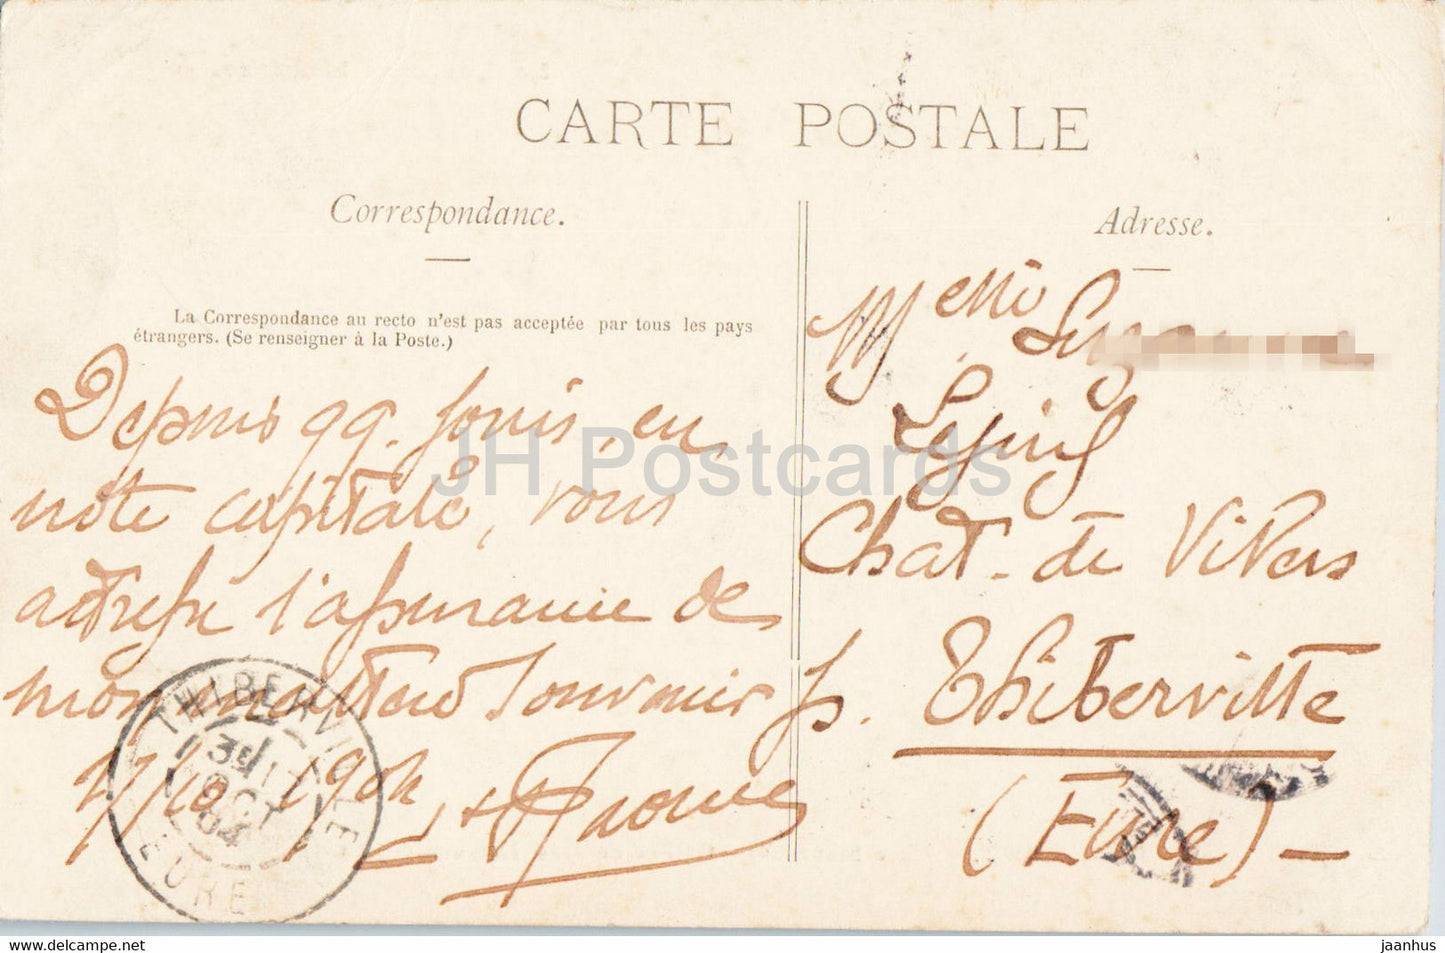 CARTE POSTALE
Correspondance.
La Correspondance au recto n'est pas acceptée par tous les pays
étrangers. (Se renseigner à la Poste.)
Depuis qq. jours, en
notre capitale, vous
adresse l'assurance de
mon meilleur souvenir
17/10/1904
Adresse.
Melle
Chat. de Vivers
p. Thiberville
(Eure) —
THIBERVILLE
17
OCT
04
EURE
JH Postcards
delcampe.net
jaanhus